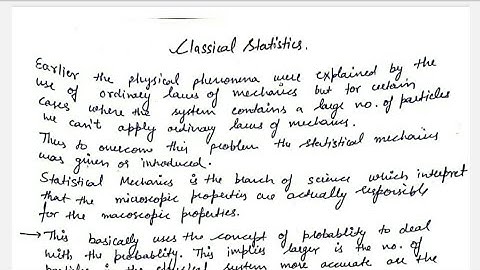 Classical Statistics.
Earlier the physical phenomena were explained by the
use of ordinary laws of mechanics but for certain
cases where the system contains a large no. of particles
we can't apply ordinary laws of mechanics.
Thus to overcome this problem the statistical mechanics
was given or introduced.
Statistical Mechanics is the branch of science which interpret
that the microscopic properties are actually responsible
for the macoscopic properties.
→ This basically uses the concept of probability to deal
with the probability. This implies larger is the no. of
particles in the physical system more accurate are the